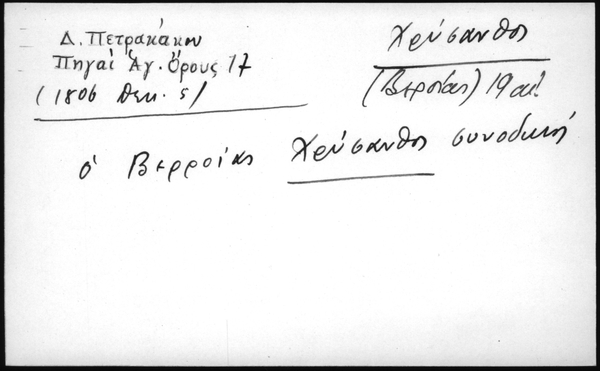 Δ. Πετρακάκου
Πηγαὶ Ἁγ. Ὄρους 17
(1806 Δεκ. 5)
Χρύσανθος
(Βεροίας) 19 αἰ.
ὁ Βερροίας Χρύσανθος συνοδικῶς